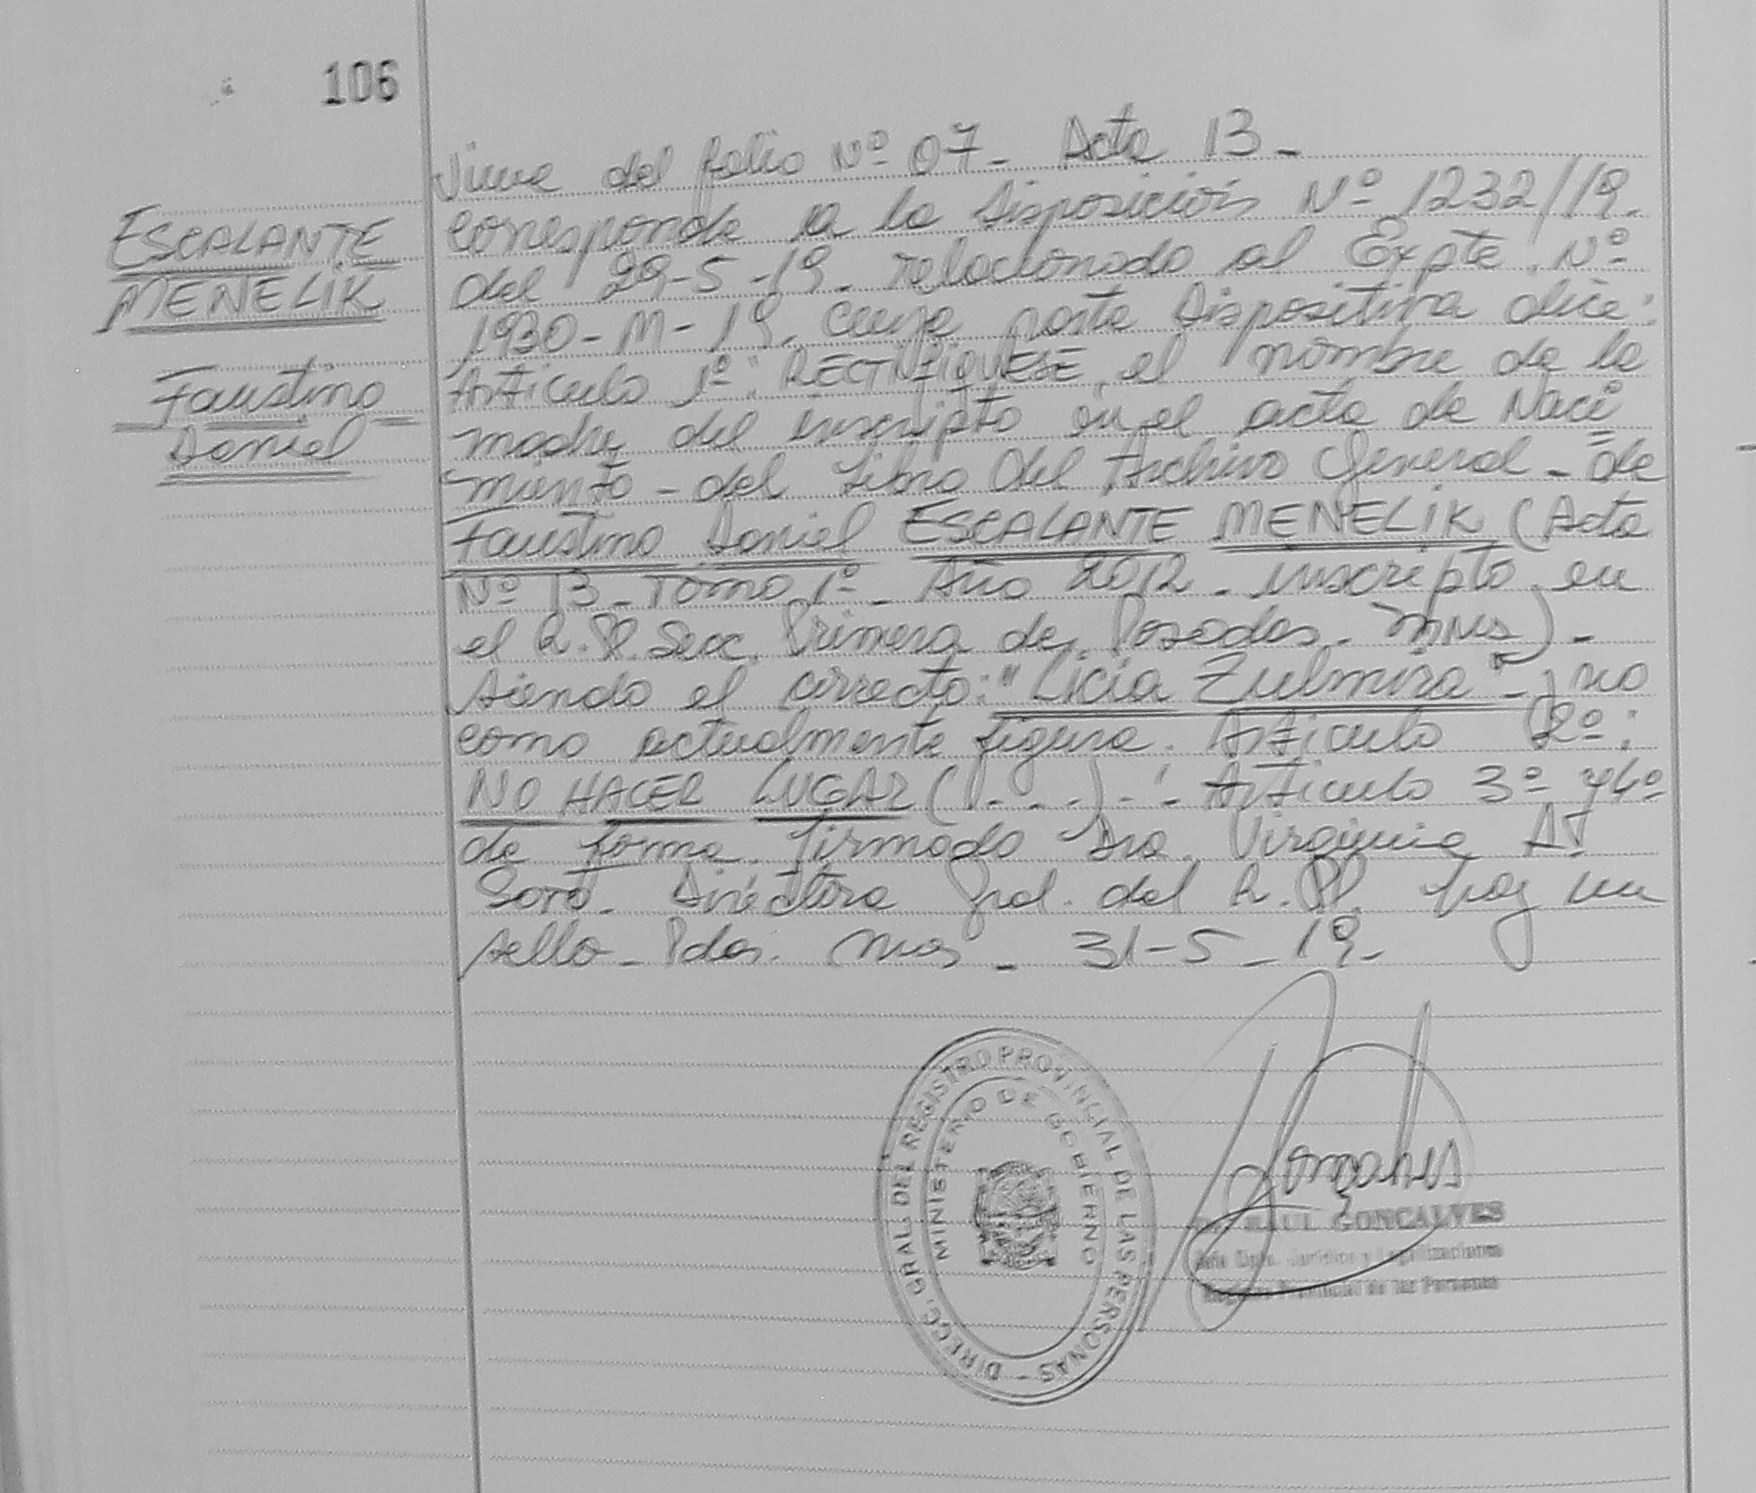 106
ESCALANTE
MENELIK
Faustino
Daniel
Viene del folio Nº 07- Acta 13-
corresponde a la Disposición Nº 1232/19.
del 29-5-19. relacionado al Expte. Nº
1930-M-19. cuya parte Dispositiva dice:
Artículo 1º: RECTIFIQUESE, el nombre de la
madre del inscripto en el acta de Naci=
miento - del Libro Del Archivo General - de
Faustino Daniel ESCALANTE MENELIK (Acta
Nº 13 - Tomo 1º - Año 2012 - inscripto en
el R.P. Secc. Primera de Posadas. Mnes)-
siendo el correcto: "Licia Zulmira" - y no
como actualmente figura. Artículo 2º:
NO HACER LUGAR (....)-. Artículo 3º y 4º
de forma. Firmado Dra. Virginia
Soto. Directora Gral. del R.P. hay un
sello - Pdas. Mnes - 31-5-19-
DIRECC. GRAL. DEL REGISTRO PROVINCIAL DE LAS PERSONAS -
MINISTERIO DE GOBIERNO
RAUL GONCALVES
Jefe Dpto. Jurídico y Legalizaciones
Registro Provincial de las Personas